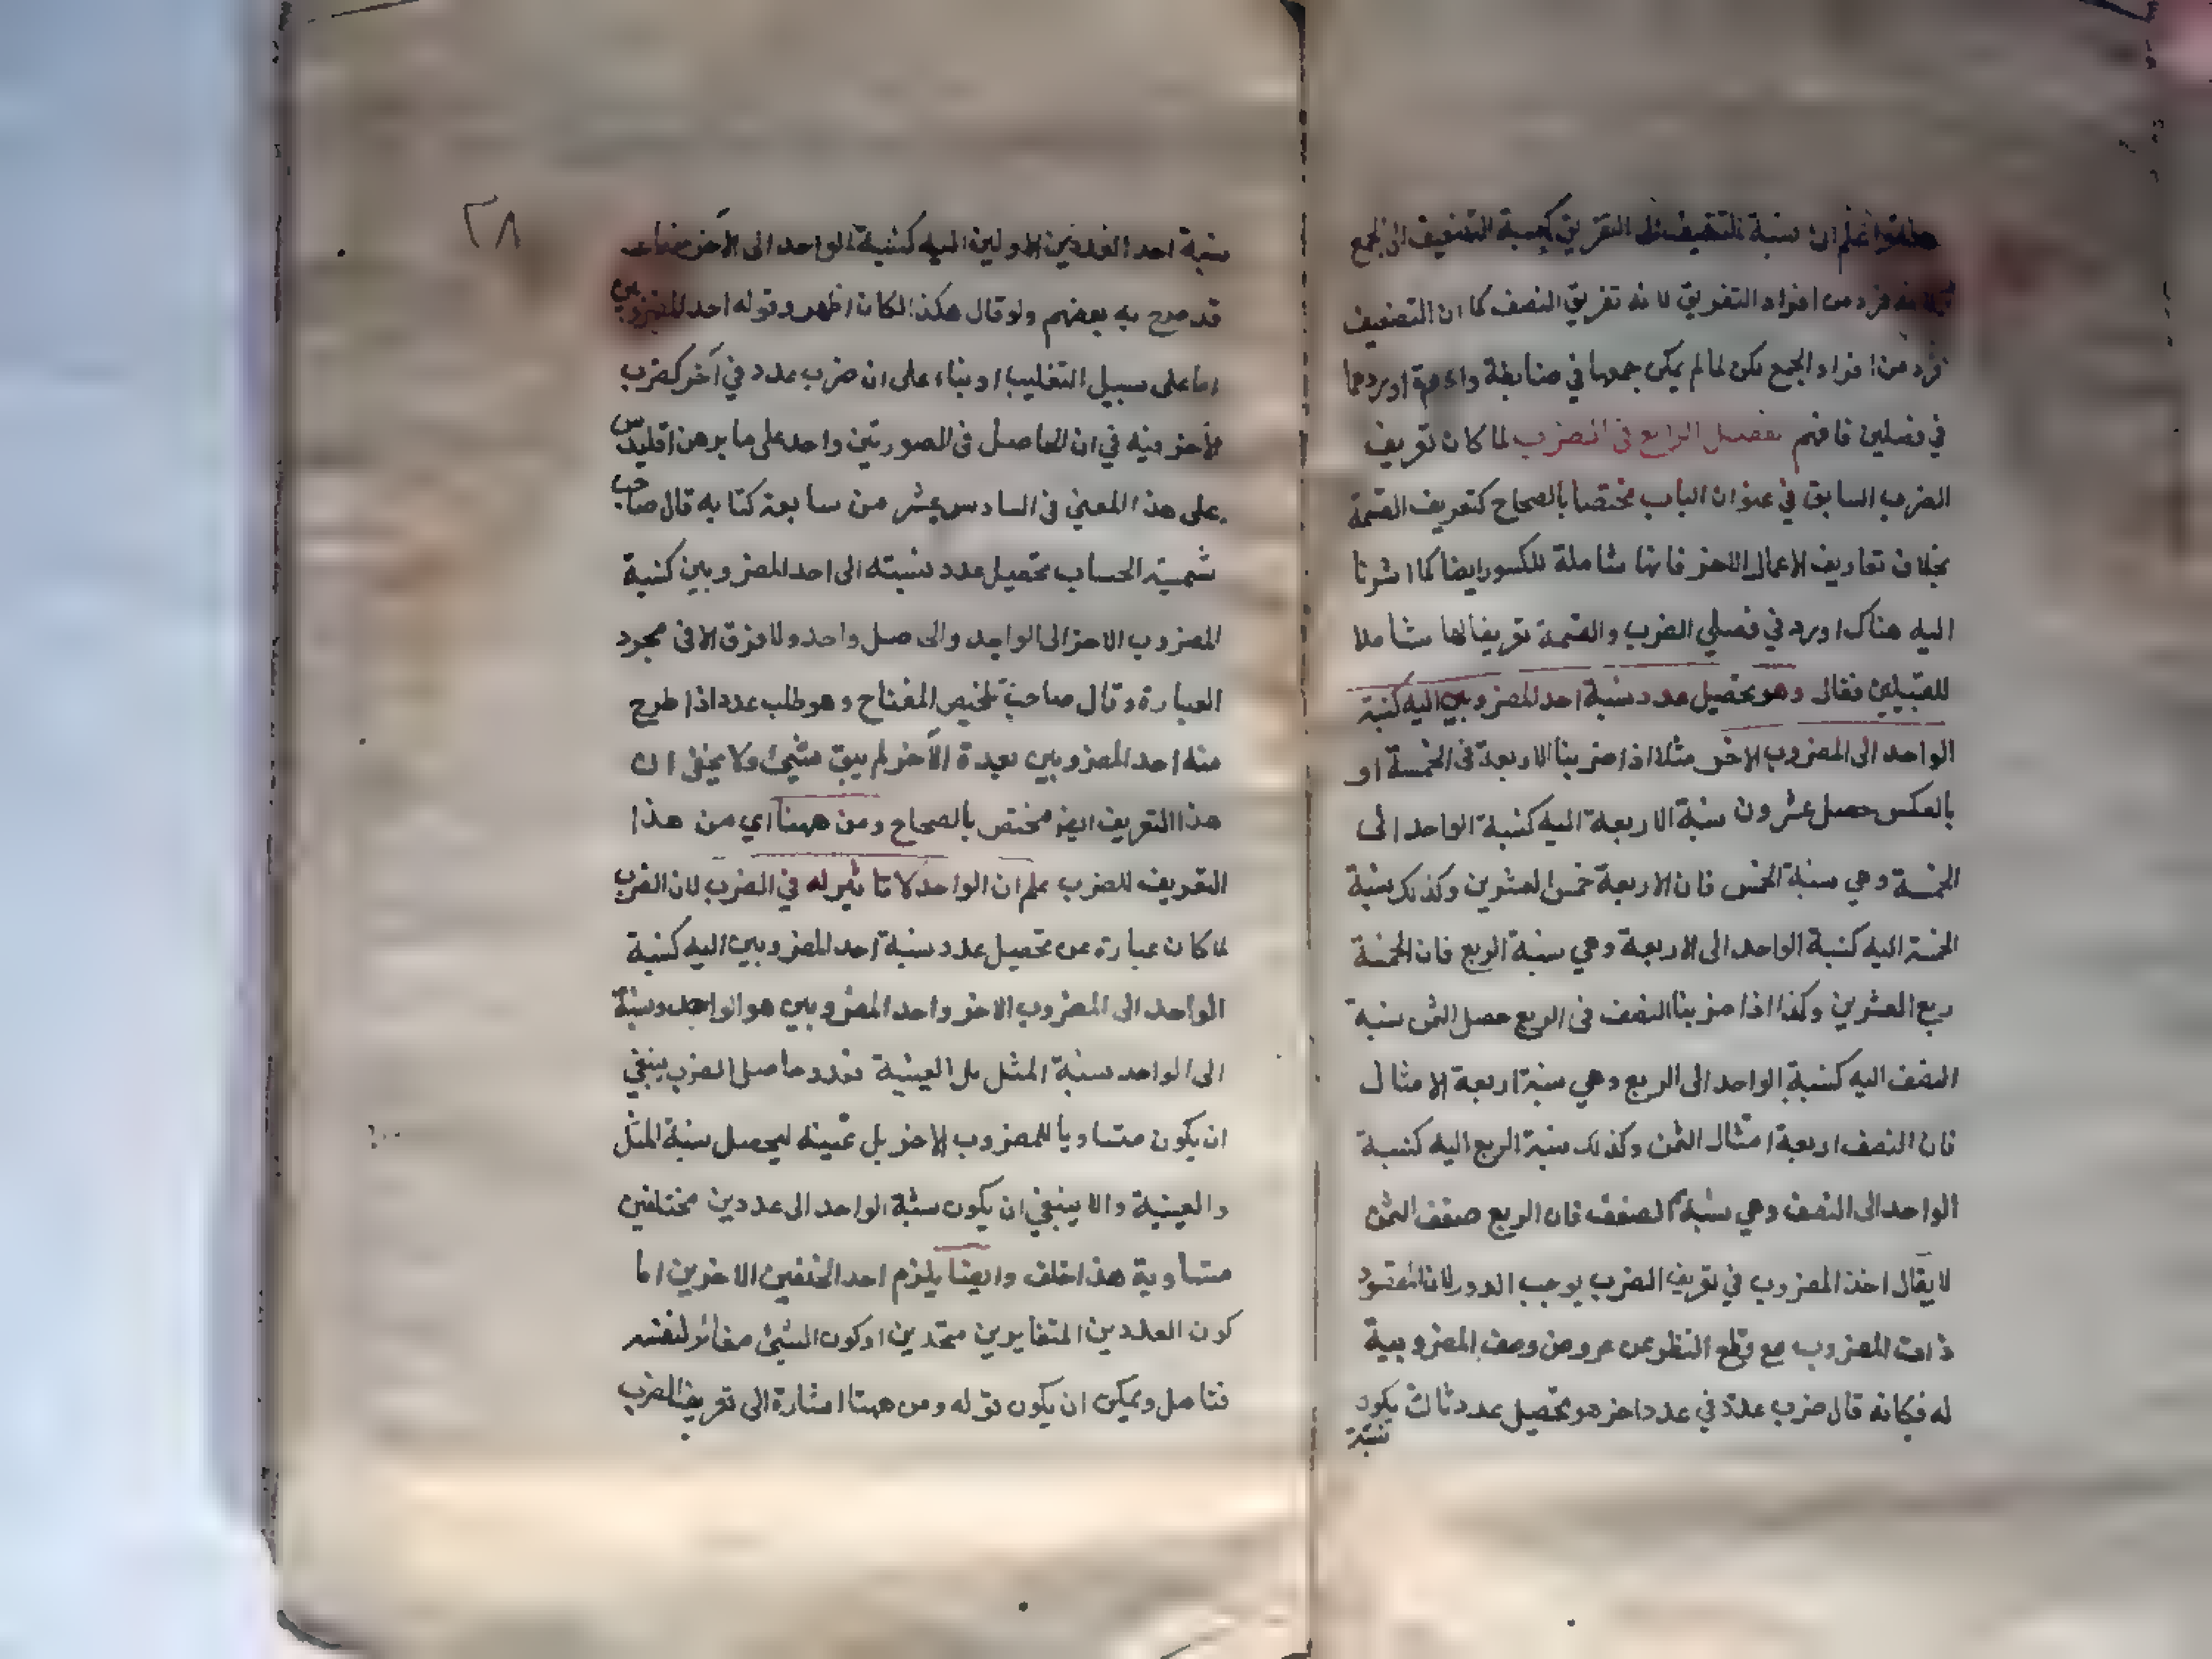 اعلم ان نسبة التنصيف الى التفريق كنسبة التضعيف الى الجمع
لانه فرد من افراد التفريق لانه تفريق النصف كما ان التضعيف
فرد من افراد الجمع لكن لما لم يمكن جمعها في ضابطة واحدة اوردهما
في فصلين فافهم الفصل الرابع فى الضرب لما كان تعريف
الضرب السابق في عنوان الباب مختصا بالصحاح كتعريف القسمة
بخلاف تعاريف الاعمال الاخر فانها شاملة للكسور ايضا كما اشرنا
اليه هناك اورد في فصلي الضرب والقسمة تعريفا لها شاملا
للقبيلين فقال وهو تحصيل عدد نسبة احد المضروبين اليه كنسبة
الواحد الى المضروب الاخر مثلا اذا ضربنا الاربعة فى الخمسة او
بالعكس حصل عشرون نسبة الاربعة اليه كنسبة الواحد الى
الخمسة وهي نسبة الخمس فان الاربعة خمس العشرين وكذلك نسبة
الخمسة اليه كنسبة الواحد الى الاربعة وهي نسبة الربع فان الخمسة
ربع العشرين وكذا اذا ضربنا النصف فى الربع حصل الثمن نسبة
النصف اليه كنسبة الواحد الى الربع وهي نسبة اربعة الامثال
فان النصف اربعة امثال الثمن وكذلك نسبة الربع اليه كنسبة
الواحد الى النصف وهي نسبة الضعف فان الربع ضعف الثمن
لا يقال اخذ المضروب في تعريف الضرب يوجب الدور لانا المقصود
ذات المضروب مع قطع النظر عن عروض وصف المضروبية
له فكانه قال ضرب عدد في عدد اخر هو تحصيل عدد ثالث يكون
نسبة
٢٨
نسبة احد العددين الاولين اليه كنسبة الواحد الى الآخر
قد صرح به بعضهم ولو قال هكذا لكان اظهر وقوله احد المضروبين
اما على سبيل التغليب او بناء على ان ضرب عدد في آخر كضرب
الآخر فيه في ان الحاصل فى الصورتين واحد على ما برهن اقليدس
على هذا المعنى فى السادس عشر من سابعة كتابه قال صاحب
شمسية الحساب تحصيل عدد نسبته الى احد المضروبين كنسبة
المضروب الاخر الى الواحد والحاصل واحد ولا فرق الا فى مجرد
العبارة وقال صاحب تلخيص المفتاح وهو طلب عدد اذا طرح
منه احد المضروبين بعدة الآخر لم يبق شيئ ولا يخفى ان
هذا التعريف ايضا مختص بالصحاح ومن ههنا اي من هذا
التعريف للضرب علم ان الواحد لا تاثير له في الضرب لان الضرب
لما كان عبارة عن تحصيل عدد نسبة احد المضروبين اليه كنسبة
الواحد الى المضروب الاخر واحد المضروبين هو الواحد ونسبة
الى الواحد نسبة المثل بل العينية فعدد حاصل الضرب ينبغي
ان يكون متساويا للمضروب الاخر بل عينه ليحصل نسبة المثل
والعينية والا ينبغي ان يكون نسبة الواحد الى عددين مختلفين
متساوية هذا خلف وايضا يلزم احد الخلفين الاخرين اما
كون العددين المتغايرين متحدين او كون الشيئ مغائر لنفسه
فتامل ويمكن ان يكون قوله ومن ههنا اشارة الى تعريف الضرب